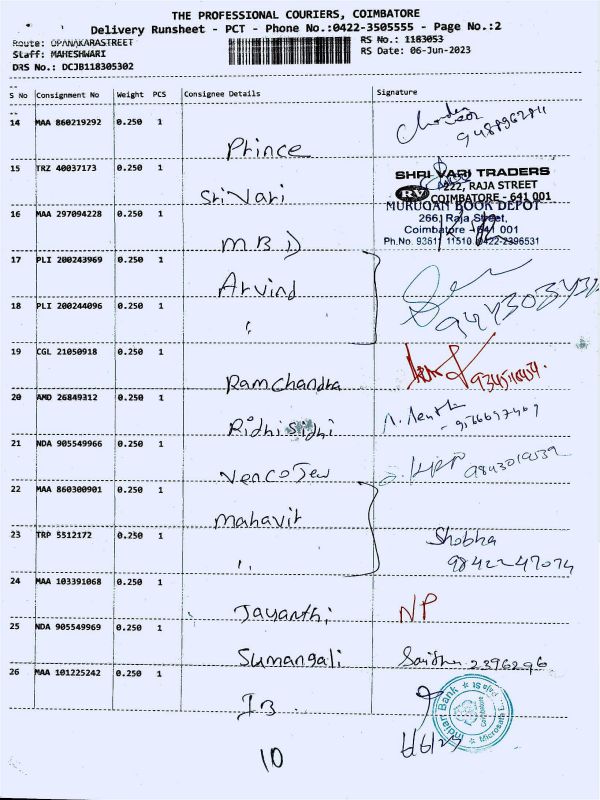 THE PROFESSIONAL COURIERS, COIMBATORE
Delivery Runsheet - PCT - Phone No.:0422-3505555 - Page No.:2
Route: OPANAKARASTREET RS No.: 1183053
Staff: MAHESHWARI RS Date: 06-Jun-2023
DRS No.: DCJB118305302
S No Consignment No Weight PCS Consignee Details Signature
14 MAA 860219292 0.250 1
Prince
15 TRZ 40037173 0.250 1
SHRI VARI TRADERS
RV 222, RAJA STREET
COIMBATORE - 641 001
Sri Vari
16 MAA 297094228 0.250 1
MURUGAN BOOK DEPOT
266, Raja Street,
Coimbatore - 641 001
Ph.No. 93611 11510, 0422-2396531
M B D
17 PLI 200243969 0.250 1
Arvind
18 PLI 200244096 0.250 1
"
19 CGL 21050918 0.250 1
Ramchandra
20 AMD 26849312 0.250 1
Ridhi Sidhi
21 NDA 905549966 0.250 1
Venco Jew
22 MAA 860300901 0.250 1
Mahavir
23 TRP 5512172 0.250 1
Shobha
98422-47074
"
24 MAA 103391068 0.250 1
Jayanthi NP
25 NDA 905549969 0.250 1
Sumangali 2396296
26 MAA 101225242 0.250 1
Indian Bank
IB
6/6/23
10